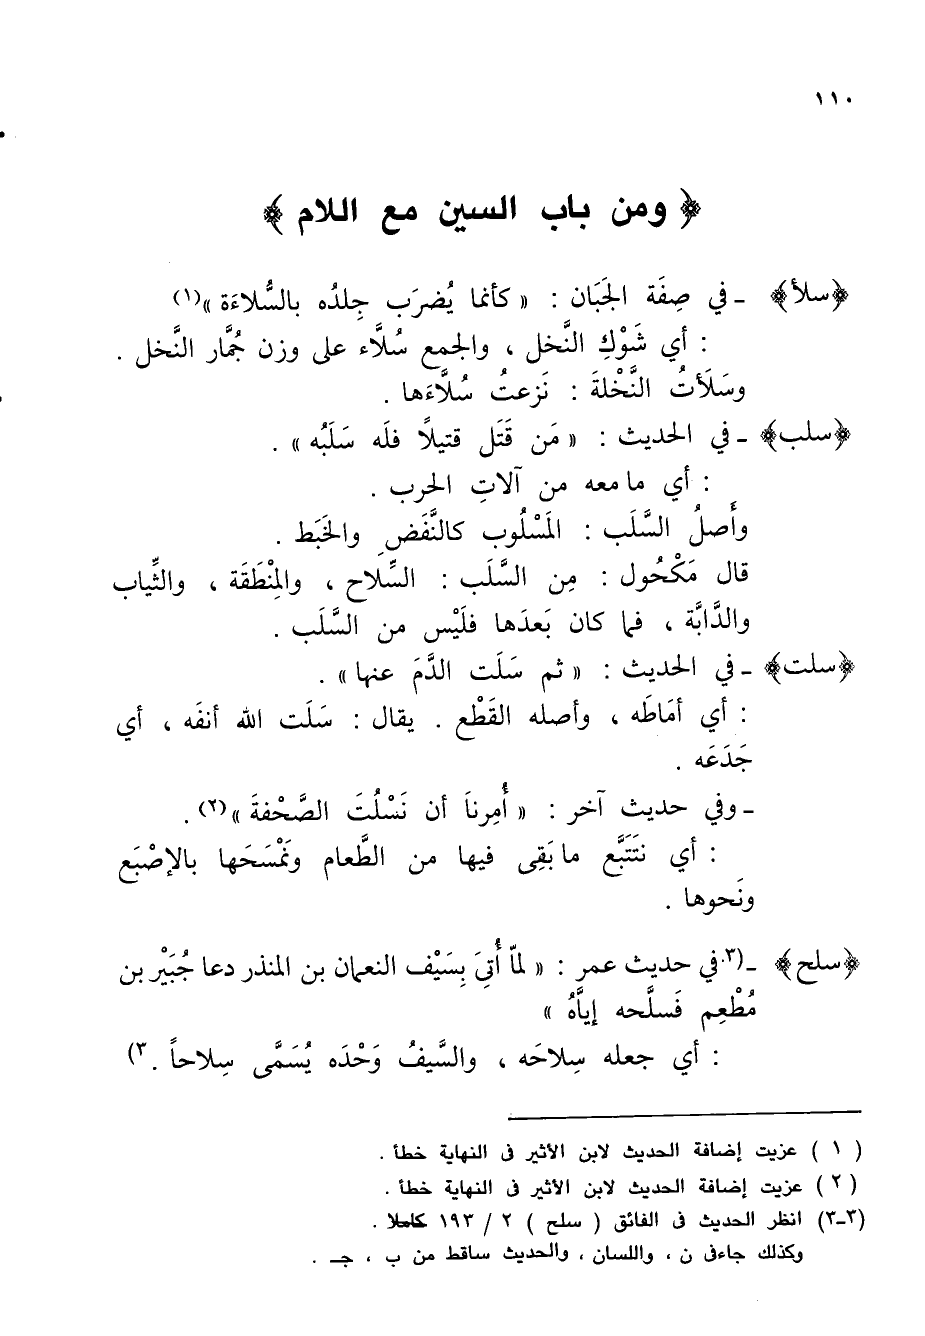 ١١٠
﴿ ومن باب السين مع اللام ﴾
﴿سلأ﴾ ـ في صِفَة الجَبَان : « كأنما يُضرَب جِلدُه بالسُّلاءَة »(١)
: أي شَوْكِ النَّخل ، والجمع سُلَّاء على وزن جُمَّار النَّخل .
وسَلَأتُ النَّخْلةَ : نَزعتُ سُلَّاءَها .
﴿سلب﴾ ـ في الحديث : « مَن قَتَل قتيلاً فلَه سَلَبُه » .
: أي ما معه من آلاتِ الحرب .
وأَصلُ السَّلَب : المَسْلُوب كالنَّفَضِ والخَبَط .
قال مَكْحُول : مِن السَّلَب : السِّلاح ، والمِنْطَقَة ، والثِّياب
والدَّابَّة ، فما كان بَعدَها فلَيْس من السَّلَب .
﴿سلت﴾ ـ في الحديث : « ثم سَلَت الدَّمَ عنها » .
: أي أمَاطَه ، وأصله القَطْع . يقال : سَلَت الله أنفَه ، أي
جَدَعَه .
ـ وفي حديث آخر : « أُمِرنا أن نَسْلُتَ الصَّحْفةَ »(٢) .
: أي نتَتَبَّع ما بَقِى فيها من الطَّعام ونَمْسَحَها بالإصْبَع
ونَحوها .
﴿سلح﴾ ـ(٣ في حديث عمر : « لمّا أُتىَ بِسَيْف النعمان بن المنذر دعا جُبَيْر بن
مُطْعِم فَسلَّحه إيَّاهُ »
: أي جعله سِلاحَه ، والسَّيفُ وَحْدَه يُسَمَّى سِلاحاً .٣)
( ١ ) عزيت إضافة الحديث لابن الأثير فى النهاية خطأ .
( ٢ ) عزيت إضافة الحديث لابن الأثير فى النهاية خطأ .
(٣ـ٣) انظر الحديث فى الفائق ( سلح ) ٢ / ١٩٣ كاملا .
وكذلك جاءفى ن ، واللسان ، والحديث ساقط من ب ، جـ .